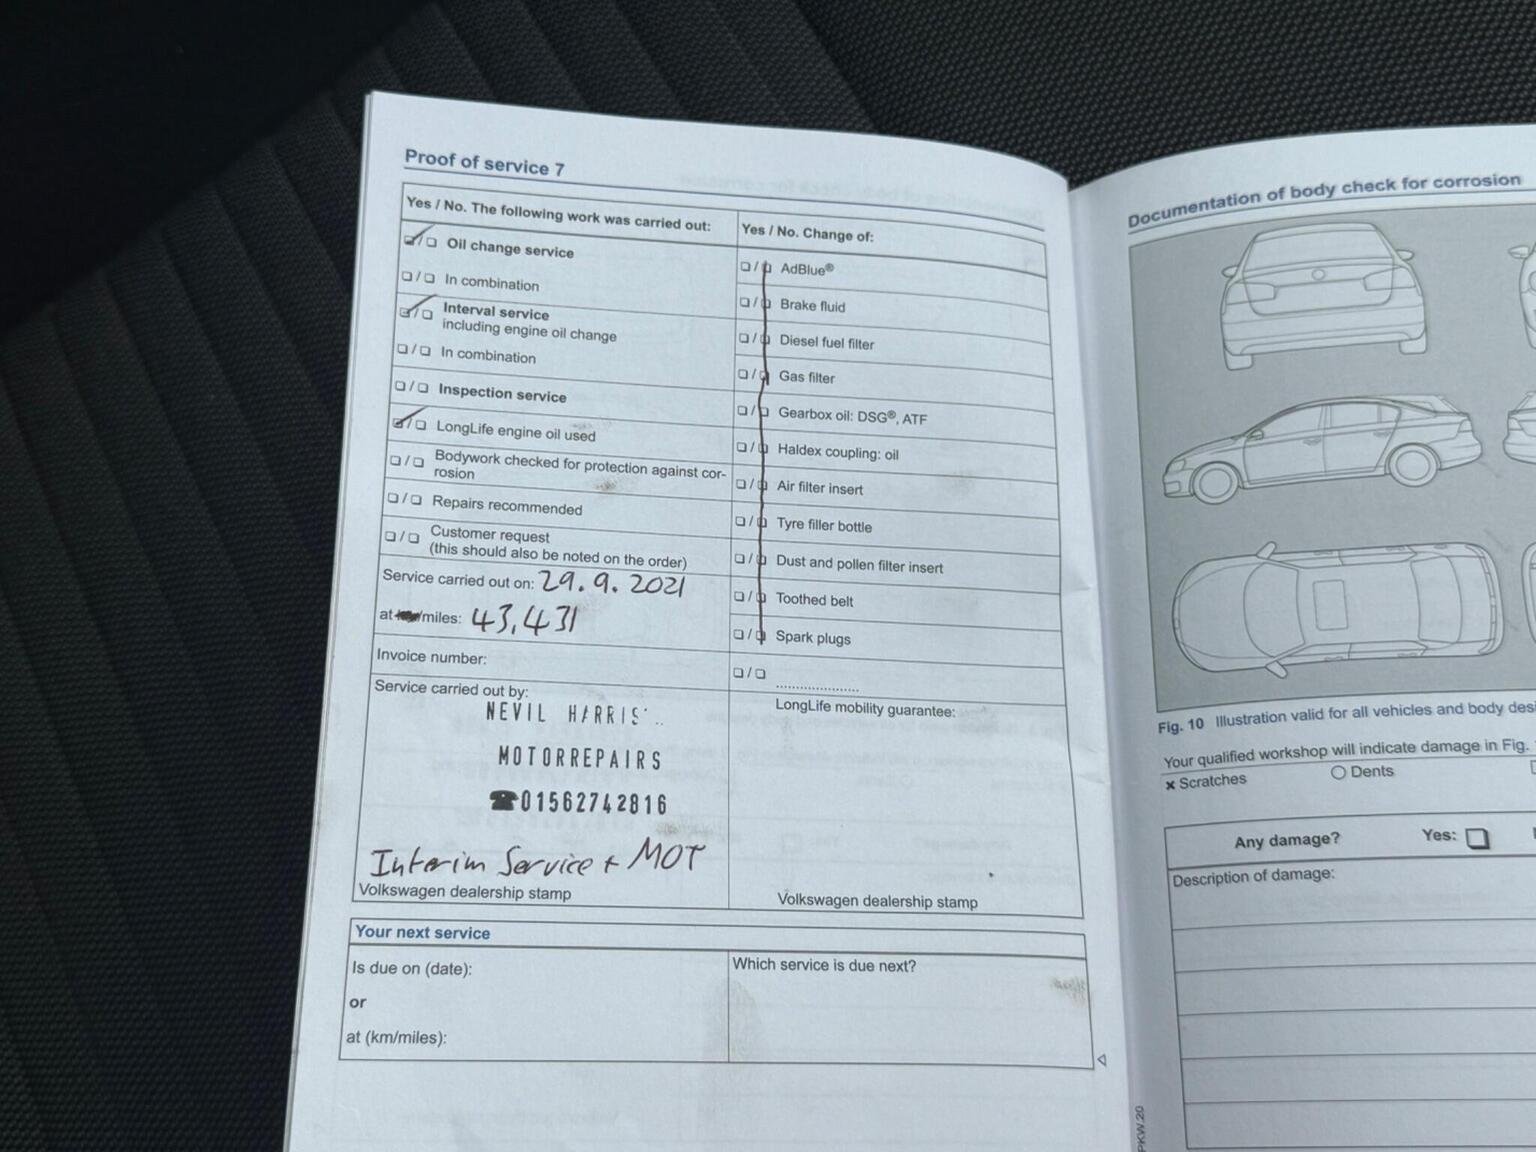 Proof of service 7
Yes / No. The following work was carried out:
Oil change service
In combination
Interval service
including engine oil change
In combination
Inspection service
LongLife engine oil used
Bodywork checked for protection against cor-
rosion
Repairs recommended
Customer request
(this should also be noted on the order)
Service carried out on: 29.9.2021
at /miles: 43,431
Invoice number:
Service carried out by:
NEVIL HARRIS
MOTORREPAIRS
☎01562742816
Interim Service + MOT
Volkswagen dealership stamp
Yes / No. Change of:
AdBlue®
Brake fluid
Diesel fuel filter
Gas filter
Gearbox oil: DSG®, ATF
Haldex coupling: oil
Air filter insert
Tyre filler bottle
Dust and pollen filter insert
Toothed belt
Spark plugs
LongLife mobility guarantee:
Volkswagen dealership stamp
Your next service
Is due on (date):
or
at (km/miles):
Which service is due next?
Documentation of body check for corrosion
Fig. 10 Illustration valid for all vehicles and body
Your qualified workshop will indicate damage in Fig.
× Scratches
Dents
Any damage? Yes:
Description of damage:
PKW.20